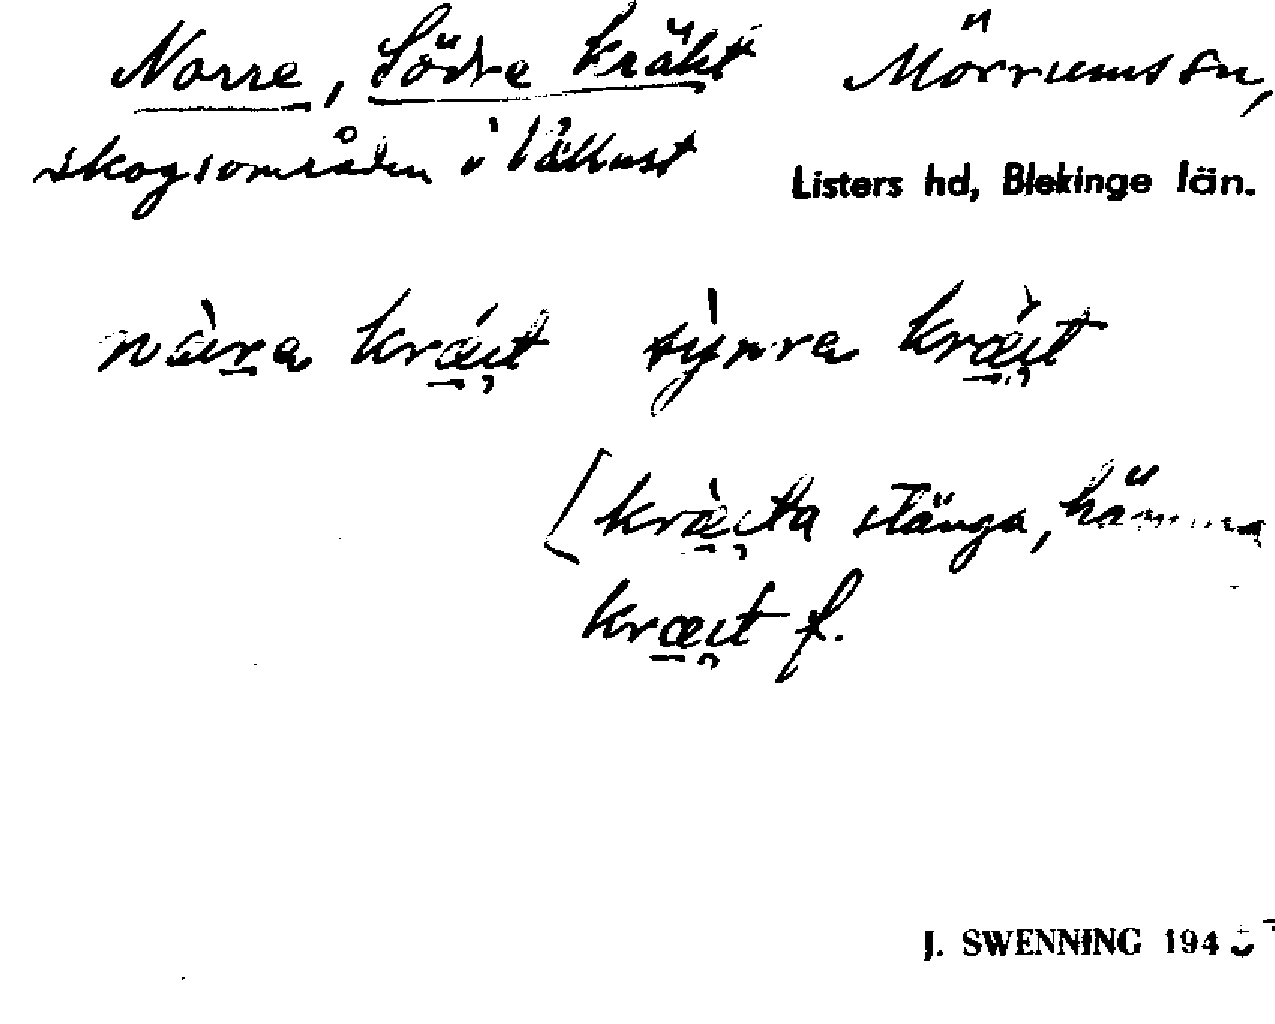 Norre, Södre kräkt Mörrums sn,
skogsområden i Vällust
Listers hd, Blekinge län.
nàıra kræ̀ıt sỳnra kræ̀ıt
[kræ̀ıta stänga, hämma
kræıt f.
J. SWENNING 194